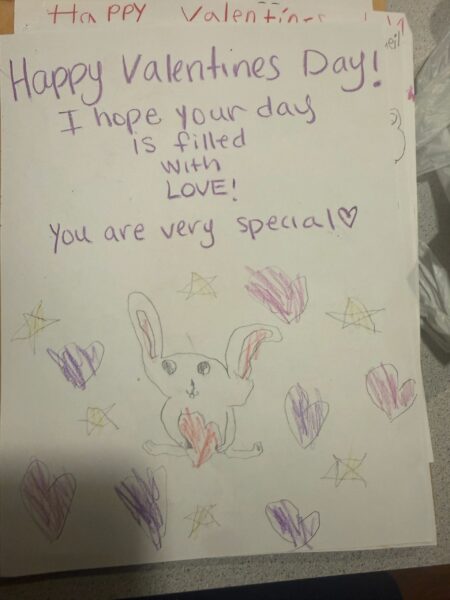 Happy Valentines
Happy Valentines Day!
I hope your day
is filled
with
LOVE!
You are very special♡